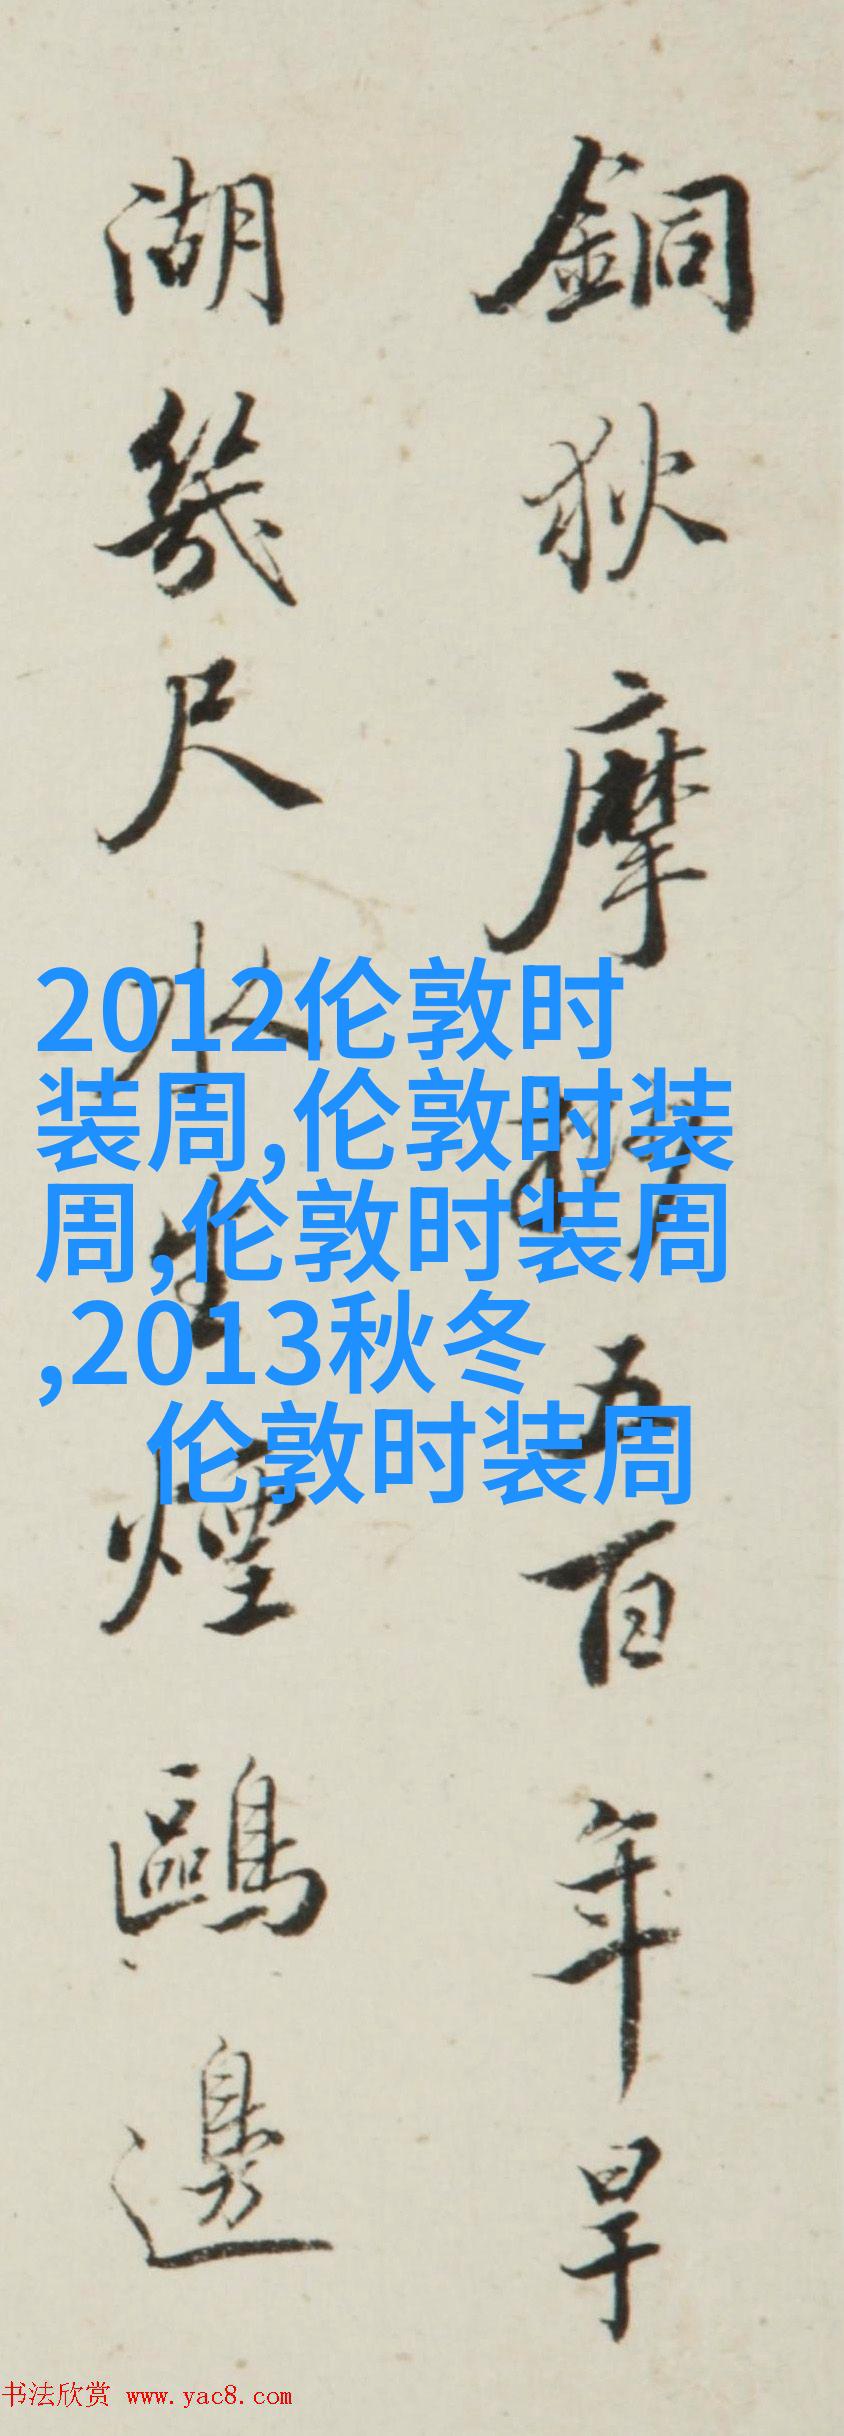 銅狄摩五百年旱
湖幾尺水生煙鷗邊
2012伦敦时
装周,伦敦时装
周,伦敦时装周
,2013秋冬
伦敦时装周
书法欣赏 www.yac8.com